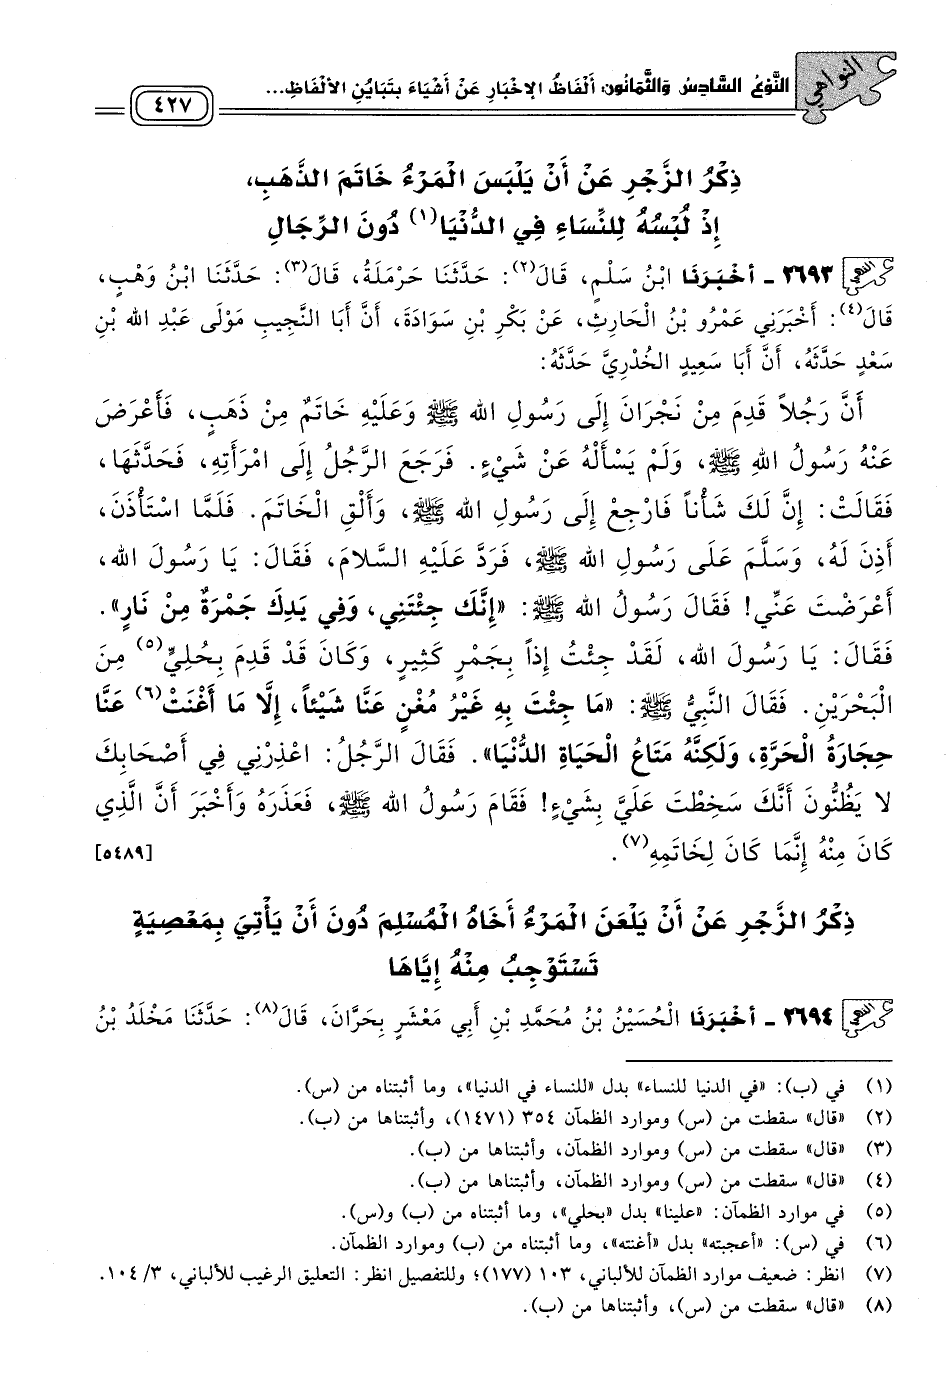 النواهي
النَّوْعُ السَّادِسُ وَالثَّمَانُونَ: أَلْفَاظُ الإِخْبَارِ عَنْ أَشْيَاءَ بِتَبَايُنِ الأَلْفَاظِ...
٤٢٧
ذِكْرُ الزَّجْرِ عَنْ أَنْ يَلْبَسَ الْمَرْءُ خَاتَمَ الذَّهَبِ،
إِذْ لُبْسُهُ لِلنِّسَاءِ فِي الدُّنْيَا(١) دُونَ الرِّجَالِ
٢٦٩٣ - أَخْبَرَنَا ابْنُ سَلْمٍ، قَالَ(٢): حَدَّثَنَا حَرْمَلَةُ، قَالَ(٣): حَدَّثَنَا ابْنُ وَهْبٍ،
قَالَ(٤): أَخْبَرَنِي عَمْرُو بْنُ الْحَارِثِ، عَنْ بَكْرِ بْنِ سَوَادَةَ، أَنَّ أَبَا النَّجِيبِ مَوْلَى عَبْدِ اللهِ بْنِ
سَعْدٍ حَدَّثَهُ، أَنَّ أَبَا سَعِيدٍ الْخُدْرِيَّ حَدَّثَهُ:
أَنَّ رَجُلاً قَدِمَ مِنْ نَجْرَانَ إِلَى رَسُولِ اللهِ ﷺ وَعَلَيْهِ خَاتَمٌ مِنْ ذَهَبٍ، فَأَعْرَضَ
عَنْهُ رَسُولُ اللهِ ﷺ، وَلَمْ يَسْأَلْهُ عَنْ شَيْءٍ. فَرَجَعَ الرَّجُلُ إِلَى امْرَأَتِهِ، فَحَدَّثَهَا،
فَقَالَتْ: إِنَّ لَكَ شَأْناً فَارْجِعْ إِلَى رَسُولِ اللهِ ﷺ، وَأَلْقِ الْخَاتَمَ. فَلَمَّا اسْتَأْذَنَ،
أَذِنَ لَهُ، وَسَلَّمَ عَلَى رَسُولِ اللهِ ﷺ، فَرَدَّ عَلَيْهِ السَّلامَ، فَقَالَ: يَا رَسُولَ اللهِ،
أَعْرَضْتَ عَنِّي! فَقَالَ رَسُولُ اللهِ ﷺ: «إِنَّكَ جِئْتَنِي، وَفِي يَدِكَ جَمْرَةٌ مِنْ نَارٍ».
فَقَالَ: يَا رَسُولَ اللهِ، لَقَدْ جِئْتُ إِذاً بِجَمْرٍ كَثِيرٍ، وَكَانَ قَدْ قَدِمَ بِحُلِيٍّ(٥) مِنَ
الْبَحْرَيْنِ. فَقَالَ النَّبِيُّ ﷺ: «مَا جِئْتَ بِهِ غَيْرُ مُغْنٍ عَنَّا شَيْئاً، إِلَّا مَا أَغْنَتْ(٦) عَنَّا
حِجَارَةُ الْحَرَّةِ، وَلَكِنَّهُ مَتَاعُ الْحَيَاةِ الدُّنْيَا». فَقَالَ الرَّجُلُ: اعْذِرْنِي فِي أَصْحَابِكَ
لا يَظُنُّونَ أَنَّكَ سَخِطْتَ عَلَيَّ بِشَيْءٍ! فَقَامَ رَسُولُ اللهِ ﷺ، فَعَذَرَهُ وَأَخْبَرَ أَنَّ الَّذِي
كَانَ مِنْهُ إِنَّمَا كَانَ لِخَاتَمِهِ(٧). [٥٤٨٩]
ذِكْرُ الزَّجْرِ عَنْ أَنْ يَلْعَنَ الْمَرْءُ أَخَاهُ الْمُسْلِمَ دُونَ أَنْ يَأْتِيَ بِمَعْصِيَةٍ
تَسْتَوْجِبُ مِنْهُ إِيَّاهَا
٢٦٩٤ - أَخْبَرَنَا الْحُسَيْنُ بْنُ مُحَمَّدِ بْنِ أَبِي مَعْشَرٍ بِحَرَّانَ، قَالَ(٨): حَدَّثَنَا مَخْلَدُ بْنُ
(١) في (ب): «في الدنيا للنساء» بدل «للنساء في الدنيا»، وما أثبتناه من (س).
(٢) «قال» سقطت من (س) وموارد الظمآن ٣٥٤ (١٤٧١)، وأثبتناها من (ب).
(٣) «قال» سقطت من (س) وموارد الظمآن، وأثبتناها من (ب).
(٤) «قال» سقطت من (س) وموارد الظمآن، وأثبتناها من (ب).
(٥) في موارد الظمآن: «علينا» بدل «بحلي»، وما أثبتناه من (ب) و(س).
(٦) في (س): «أعجبته» بدل «أغنته»، وما أثبتناه من (ب) وموارد الظمآن.
(٧) انظر: ضعيف موارد الظمآن للألباني، ١٠٣ (١٧٧)؛ وللتفصيل انظر: التعليق الرغيب للألباني، ٣/ ١٠٤.
(٨) «قال» سقطت من (س)، وأثبتناها من (ب).